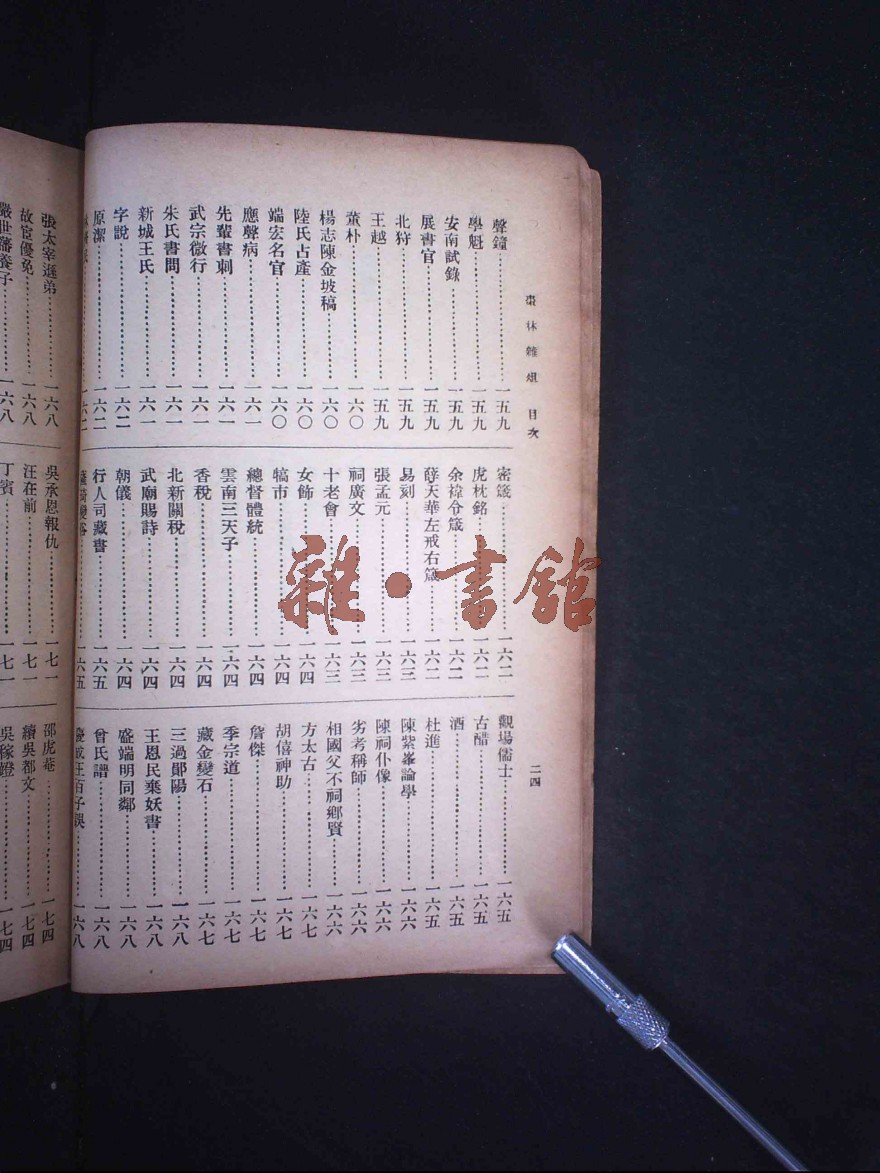 棗林雜俎 目次
二四
聲鐘……一五九
學魁……一五九
安南試錄……一五九
展書官……一五九
北狩……一五九
王越……一五九
董朴……一六〇
楊志陳金坡稿……一六〇
陸氏占產……一六〇
端宏名官……一六〇
應聲病……一六一
先輩書刺……一六一
武宗微行……一六一
朱氏書問……一六一
新城王氏……一六一
字說……一六二
原潔……一六二
密箴……一六二
虎枕銘……一六二
余褘令箴……一六二
薛天華左戒右箴……一六二
易刻……一六三
張孟元……一六三
祠廣文……一六三
十老會……一六三
女飾……一六四
犒市……一六四
總督體統……一六四
雲南三天子……一六四
香稅……一六四
北新關稅……一六四
武廟賜詩……一六四
朝儀……一六四
行人司藏書……一六五
一六五
觀場儒士……一六五
古醋……一六五
酒……一六五
杜進……一六五
陳紫峯論學……一六六
陳祠仆像……一六六
劣考稱師……一六六
相國父不祠鄉賢……一六六
方太古……一六七
胡僖神助……一六七
詹傑……一六七
季宗道……一六七
藏金變石……一六七
三過鄖陽……一六八
王恩民棄妖書……一六八
盛端明同鄰……一六八
曾氏譜……一六八
慶成王百子誤……一六八
張太宰遜弟……一六八
故宦優免……一六八
嚴世藩養子……一六八
吳承恩報仇……一七一
汪在前……一七一
丁賓……一七一
邵虎菴……一七四
續吳都文……一七四
吳稼竳……一七四
雜·書館